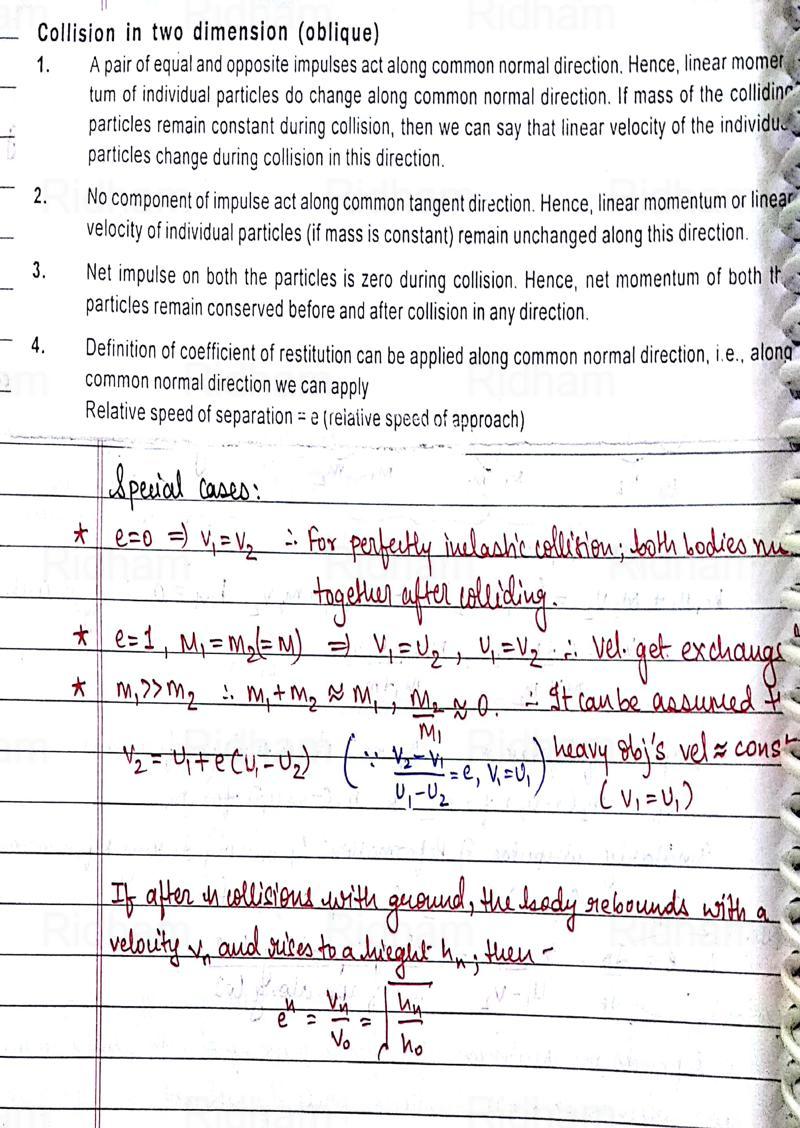 Collision in two dimension (oblique)
1. A pair of equal and opposite impulses act along common normal direction. Hence, linear momen
tum of individual particles do change along common normal direction. If mass of the colliding
particles remain constant during collision, then we can say that linear velocity of the individu
particles change during collision in this direction.
2. No component of impulse act along common tangent direction. Hence, linear momentum or linear
velocity of individual particles (if mass is constant) remain unchanged along this direction.
3. Net impulse on both the particles is zero during collision. Hence, net momentum of both th
particles remain conserved before and after collision in any direction.
4. Definition of coefficient of restitution can be applied along common normal direction, i.e., along
common normal direction we can apply
Relative speed of separation = e (relative speed of approach)
Special cases:
* e=0 ⇒ V₁=V₂ ∴ For perfectly inelastic collision; both bodies
together after colliding.
* e=1, M₁=M₂(=M) ⇒ V₁=U₂, U₁=V₂ ∴ Vel. get exchang
* m₁>>m₂ ∴ M₁+M₂ ≈ M₁, M₂/M₁ ≈ 0. ∴ It can be assumed t
V₂=U₁+e(U₁-U₂) (∵ V₂-V₁/U₁-U₂ = e, V₁=U₁) heavy obj's vel ≈ const
(V₁=U₁)
If after n collisions with ground, the body rebounds with a
velocity vₙ and rises to a hieght hₙ; then -
eⁿ = Vₙ/V₀ = √hₙ/h₀
Ridham